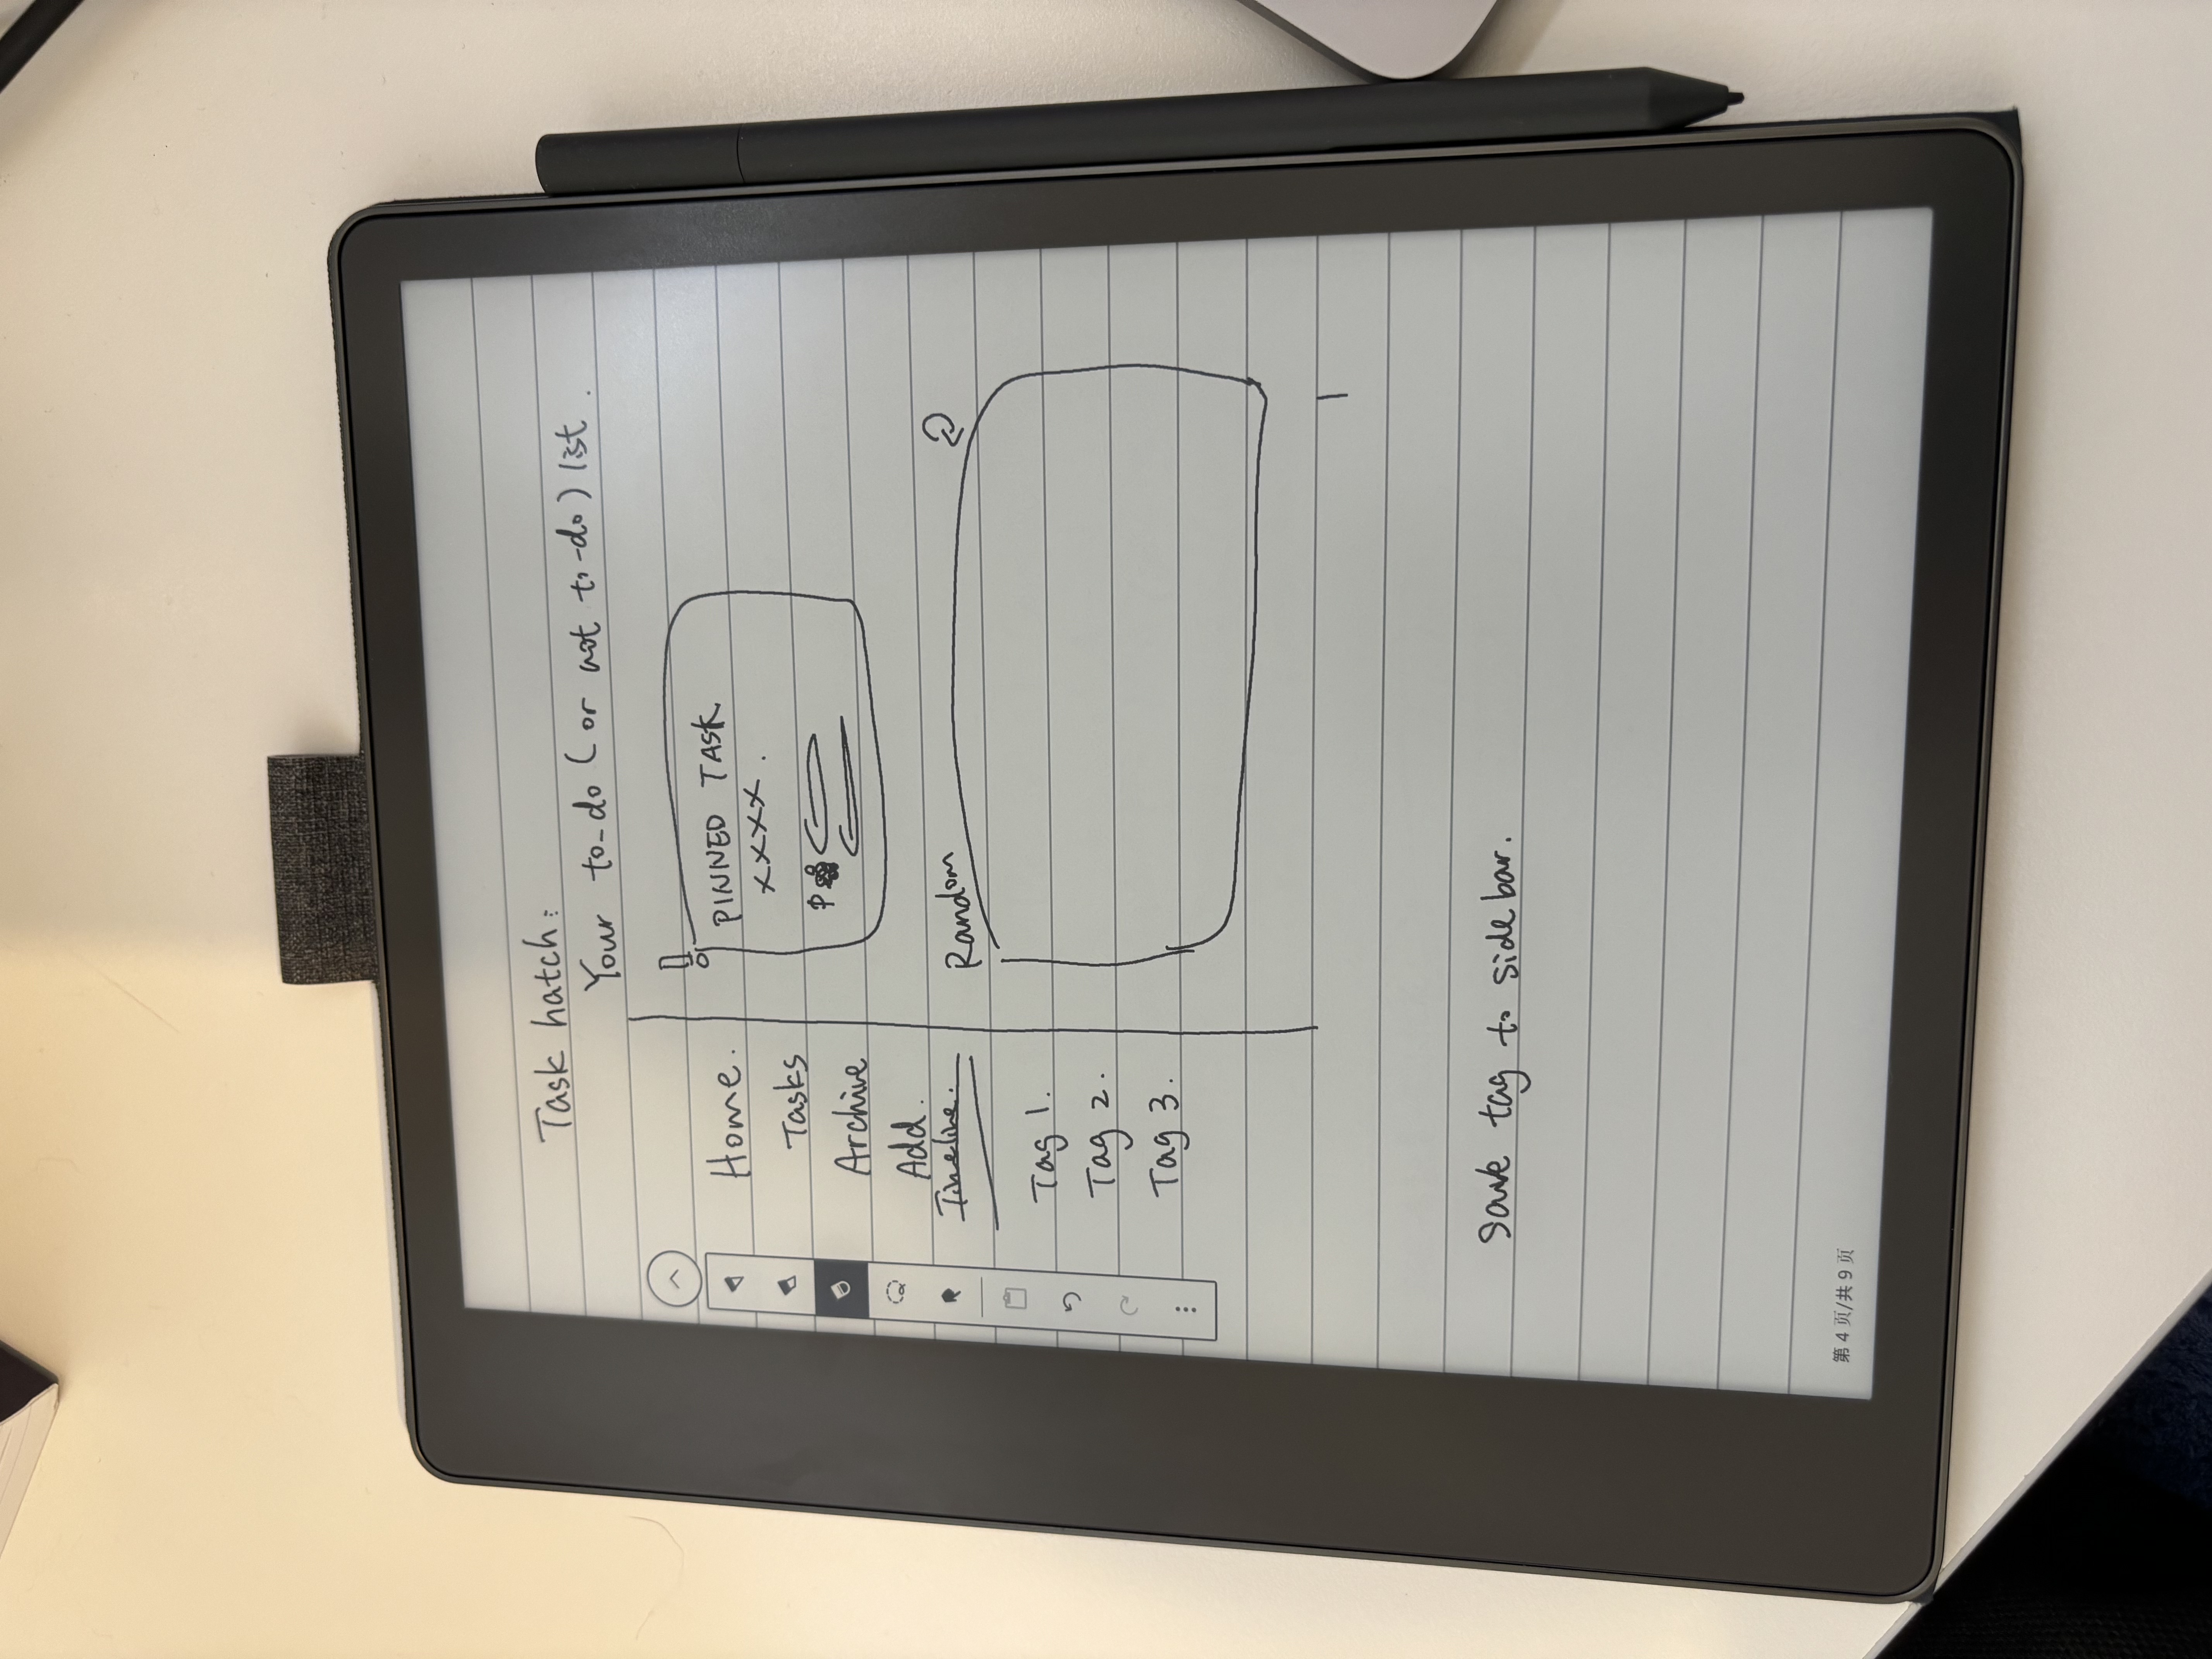 Task hatch:
Your to-do (or not to-do) list.
Home.
Tasks
Archive
Add.
Timeline.
Tag 1.
Tag 2.
Tag 3.
PINNED TASK
xxxx.
Random
Save tag to side bar.
第 4 页/共 9 页